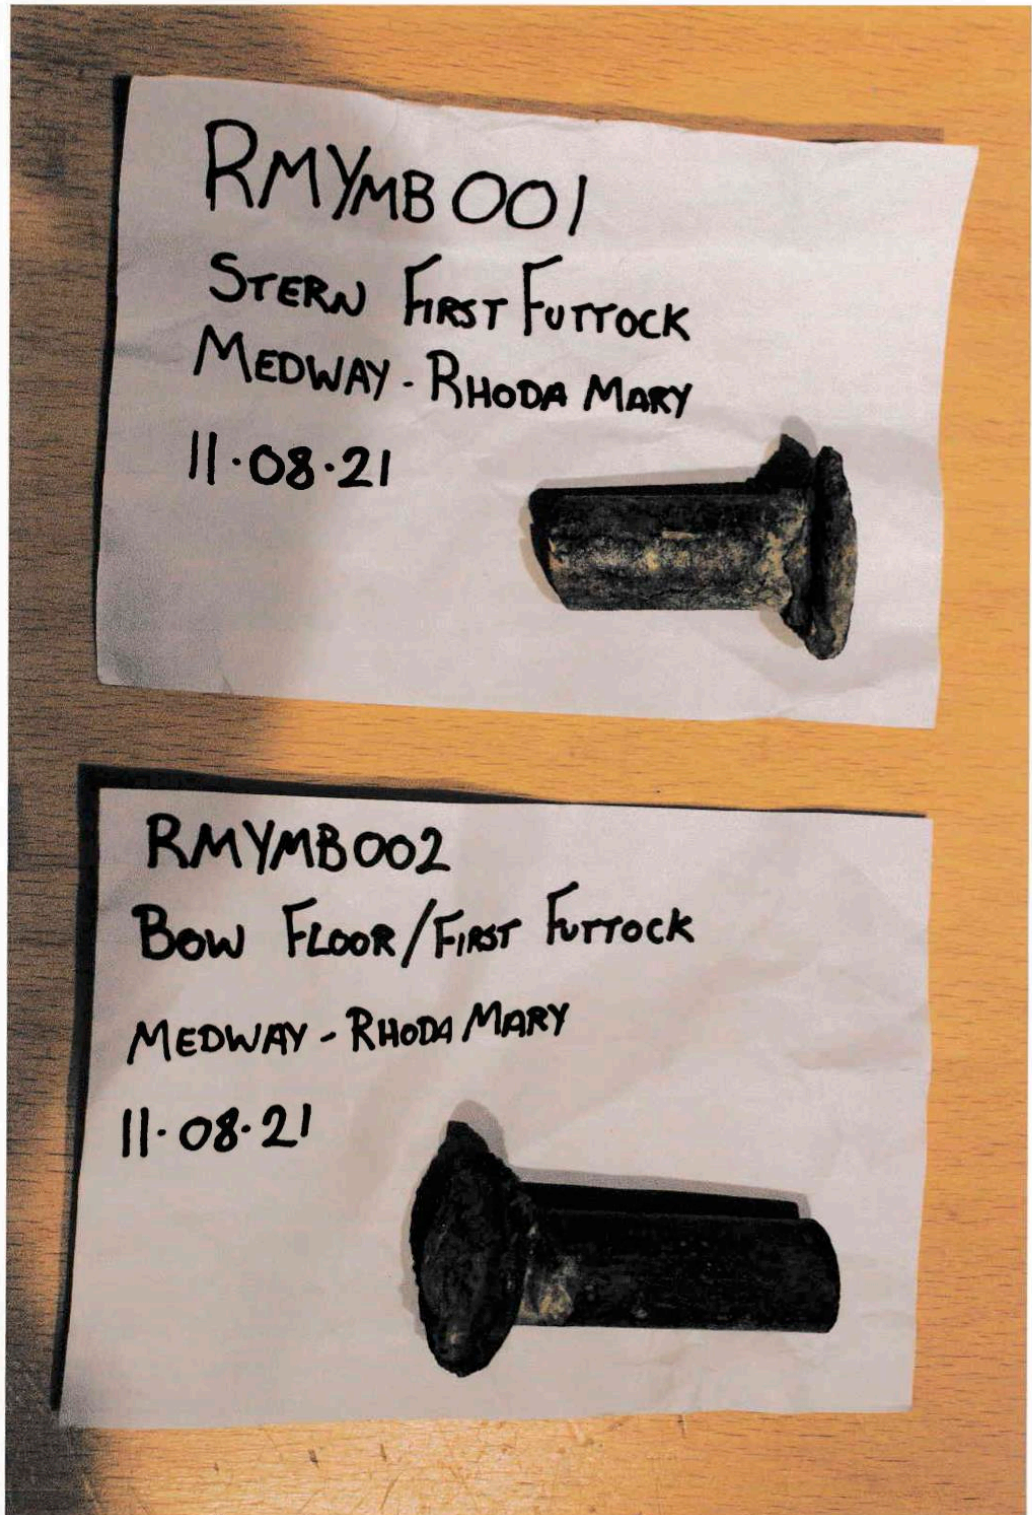 RMYMB001
STERN FIRST FUTTOCK
MEDWAY - RHODA MARY
11.08.21
RMYMB002
BOW FLOOR/FIRST FUTTOCK
MEDWAY - RHODA MARY
11.08.21